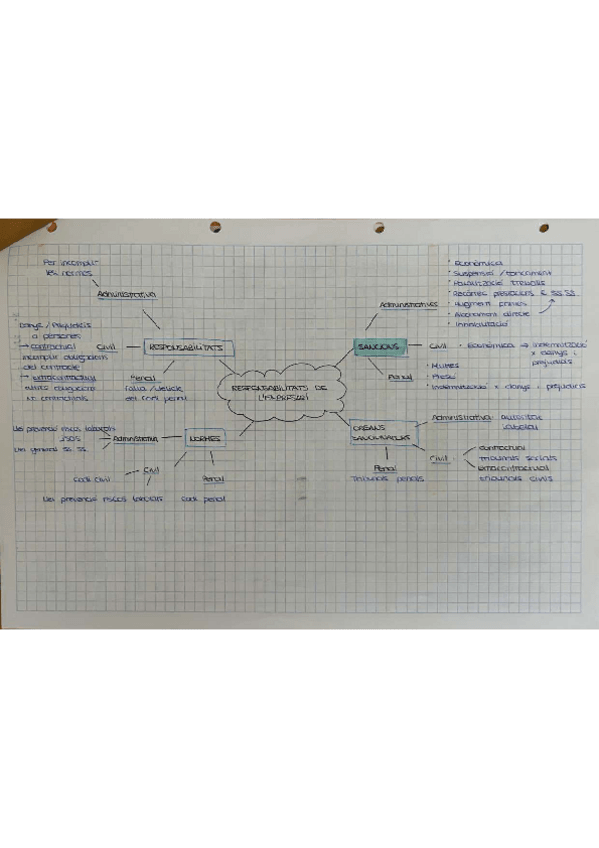 Per incomplir
les normes
Administrativa
Danys / Perjudicis
a persones
→ contractual
incomplir obligacions
del contracte
→ extracontractual
Civil
RESPONSABILITATS
Penal
Falta / delicte
del codi penal
RESPONSABILITATS DE
L'EMPRESARI
· Econòmica
· Suspensió / tancament
· Paralització treballs
· Recàrrec prestacions € SS.SS
· Augment primes
· Abonament directe
Administratives
SANCIONS
Civil · Econòmica → indemnització
x danys i
perjudicis
Penal
· Multes
· Presó
· Indemnització x danys i perjudicis
Llei prevenció riscos laborals
LISOS
Llei general SS.SS.
Administrativa
NORMES
Civil
Codi civil
Llei prevenció riscos laborals
Penal
Codi penal
ÒRGANS
SANCIONADORS
Administrativa: autoritat
laboral
Civil:
contractual
tribunals socials
extracontractual
tribunals civils
Penal
Tribunals penals